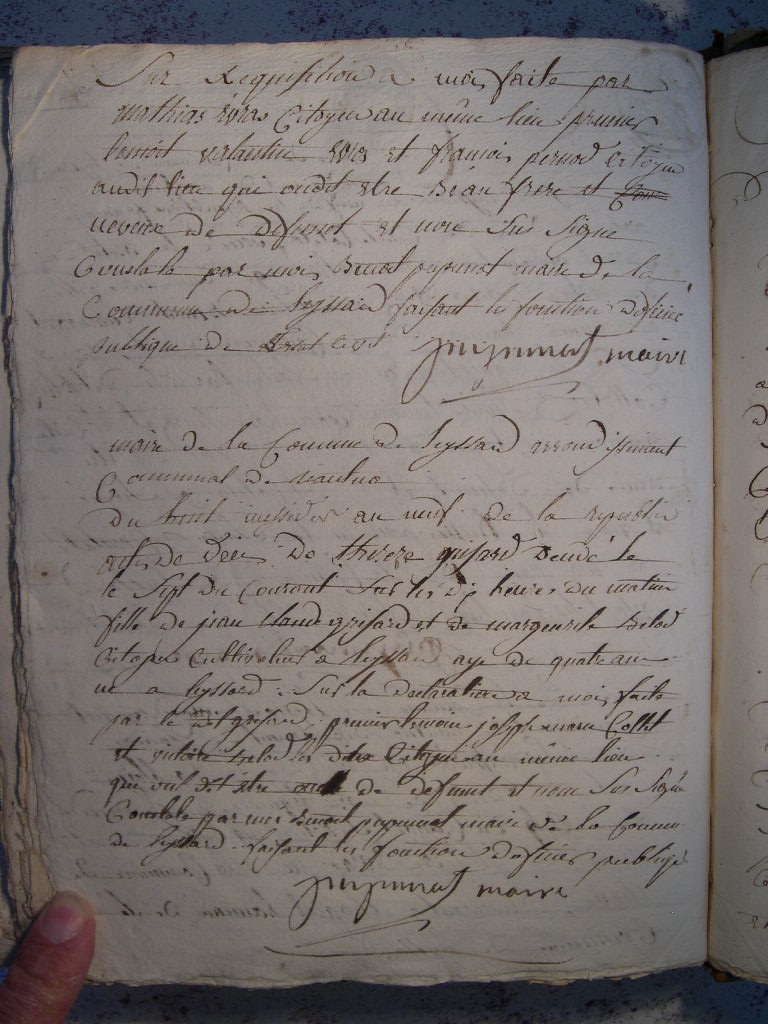 Sur Requisition a moi faite par
mathias Citoyen au même lieu premier
benoit valantin et francoi pernod Citoyen
audit lieu qui ondit etre Beau frere et
neveux de Defunct et non Sus Signé
Constaté par moi Benoit pupunat maire de la
Commune de leyssard faisant les fonction dofficié
publique de
pupunat maire
maire de la Commune de leyssard arrondissement
Communal de nantua
Du huit messidor an neuf de la republi
acte de déces De therese grisard Décédé le
le Sept du Courant Sur les dix heures du matin
fille de jean Claude grisard et de marguerite Belod
Citoyen Cultivateur a leyssard agé de quatre an
né a leyssard. Sur la declaration a moi faite
par le dit grisard premier temoin joseph marie Collet
et Belod les deux Citoyen au même lieu
qui ont dit être oncle de defunt et non Sus Signé
Constaté par moi Benoit pupunat maire de la Commu
de leyssard faisant les fonction dofficier publique
pupunat maire